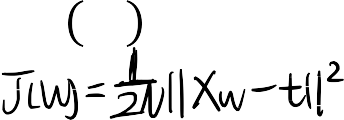 ( )
J(w) = 1/2N ||Xw - t||²